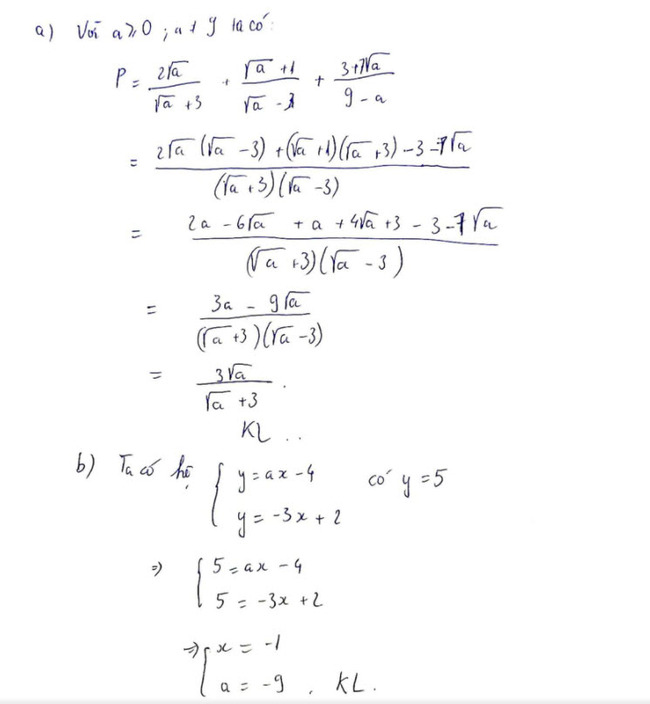 a) Với a ⩾ 0 ; a ≠ 9 ta có:
P = 2√a / (√a + 3) + (√a + 1) / (√a - 3) + (3 + 7√a) / (9 - a)
= (2√a (√a - 3) + (√a + 1)(√a + 3) - 3 - 7√a) / ((√a + 3)(√a - 3))
= (2a - 6√a + a + 4√a + 3 - 3 - 7√a) / ((√a + 3)(√a - 3))
= (3a - 9√a) / ((√a + 3)(√a - 3))
= 3√a / (√a + 3) .
KL ..
b) Ta có hệ { y = ax - 4 có y = 5
y = -3x + 2
=> { 5 = ax - 4
5 = -3x + 2
=> { x = -1
a = -9 , KL.